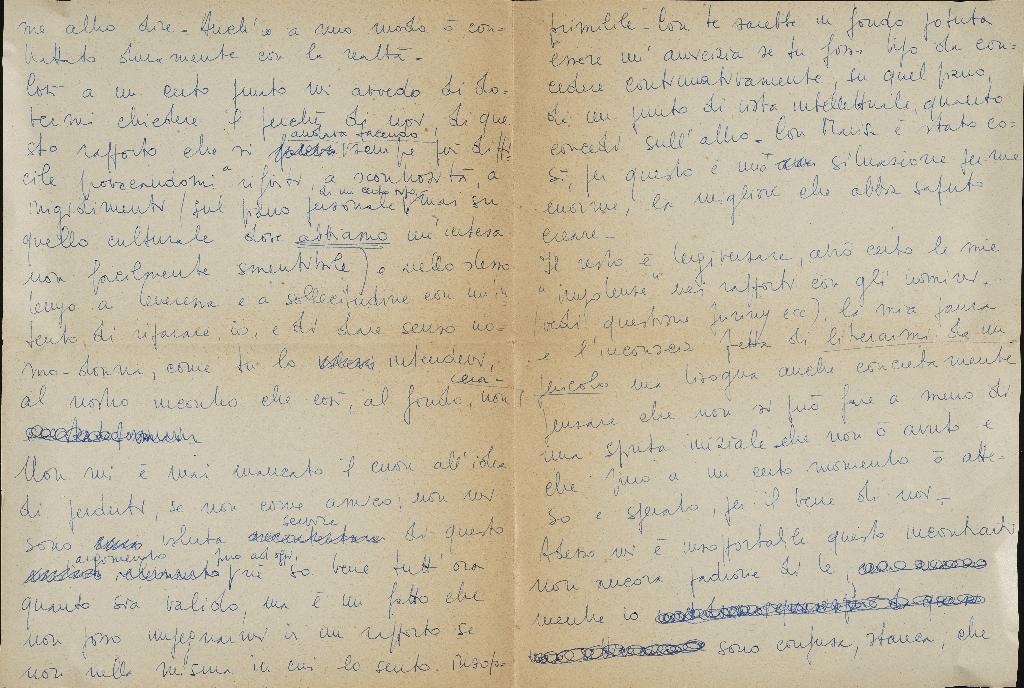 me altro dire. Anch'io a mio modo ò con-
trattato duramente con la realtà.
Così a un certo punto mi avvedo di do-
vermi chiedere il perché di noi, di que
sto rapporto che si andava facendo sempre più diffi
cile provocandomi a rifiuti, a scontrosità, a
irrigidimenti (sul piano personale, di un certo tipo, mai su
quello culturale dove abbiamo un'intesa
non facilmente smentibile) e nello stesso
tempo a tenerezza e a sollecitudine con un in
tento, di riparare io, e di dare senso uo-
mo-donna, come tu lo intendevi,
al nostro incontro che così, al fondo, non era

Non mi è mai mancato il cuore all'idea
di perderti, se non come amico; non mi
sono voluta servire di questo
argomento fino ad oggi, né so bene tutt'ora
quanto sia valido, ma è un fatto che
non posso impegnarmi in un rapporto se
non nella misura in cui lo sento. Insop-
primibile. Con te sarebbe in fondo potuta
essere un'amicizia se tu fossi tipo da con-
cedere continuativamente, su quel piano,
di un punto di vista intellettuale, quanto
concedi sull'altro. Con Marisa è stato co-
sì, per questo è una situazione per me
enorme, la migliore che abbia saputo
creare.
Il resto è tergiversare, avrò certo le mie
"impotenze" nei rapporti con gli uomini
(vedi questione ecc), la mia paura
e l'inconscia fretta di liberarmi da un
pericolo ma bisogna anche concretamente
pensare che non si può fare a meno di
una spinta iniziale che non ò avuto e
che fino a un certo momento ò atte-
so e sperato, per il bene di noi.
Adesso mi è insopportabile questo incontrarti
non ancora padrone di te,
mentre io
sono confusa, stanca, che